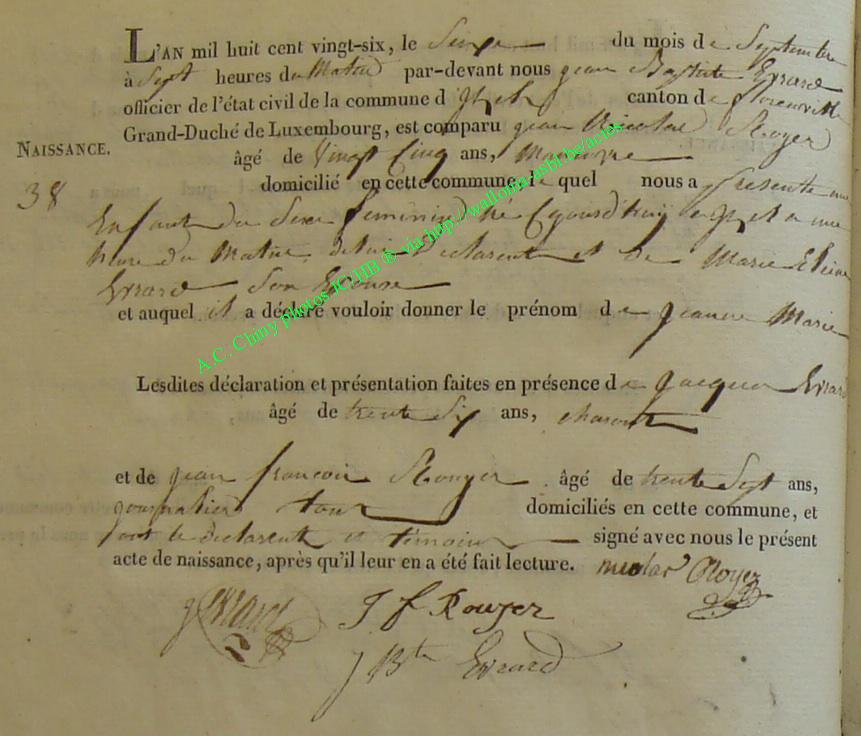 L'AN mil huit cent vingt-six, le Seize du mois de Septembre
à Sept heures du Matin par-devant nous jean Baptiste Evrard
officier de l'état civil de la commune d' canton de florenville
Grand-Duché de Luxembourg, est comparu jean Nicolas Royer
NAISSANCE.
âgé de Vingt Cinq ans, Manœuvre
38
domicilié en cette commune le quel nous a presenté un
Enfant du Sexe feminin né aujourd'huy a une
heure du Matin de lui Declarent et de Marie
Evrard Son Epouse
et auquel il a déclaré vouloir donner le prénom de jeanne Marie
Lesdites déclaration et présentation faites en présence de jacques Evrard
âgé de trente Six ans,
et de jean françois Rouyer âgé de trente Sept ans,
journalier tous domiciliés en cette commune, et
ont le Declarent et témoins signé avec nous le présent
acte de naissance, après qu'il leur en a été fait lecture. nicolas Royer
j Evrard J f Rouyer
J Bte Evrard
A.C. Chiny photos JC.HB ® via http://wallonia.asbl.be/actes